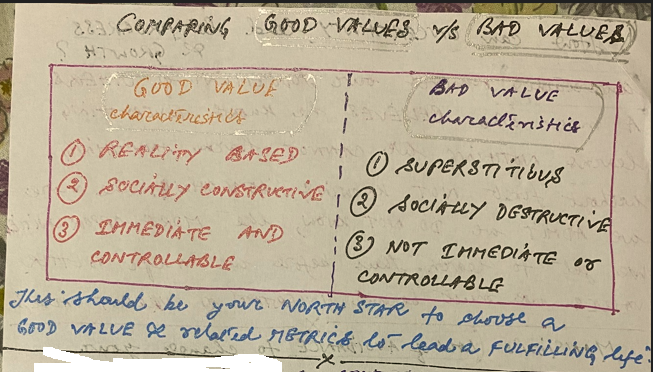 COMPARING GOOD VALUES v/s BAD VALUES
GOOD VALUE
characteristics
① REALITY BASED
② SOCIALLY CONSTRUCTIVE
③ IMMEDIATE AND
CONTROLLABLE
BAD VALUE
characteristics
① SUPERSTITIOUS
② SOCIALLY DESTRUCTIVE
③ NOT IMMEDIATE or
CONTROLLABLE
This should be your NORTH STAR to choose a
GOOD VALUE & related METRICS to lead a FULFILLING life.